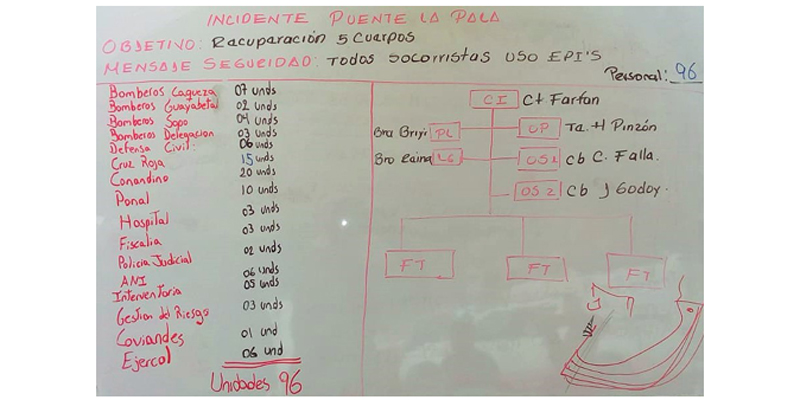 INCIDENTE PUENTE LA PALA
OBJETIVO: Racuparación 5 Cuerpos
MENSAJE SEGURIDAD: Todos socorristas USO EPI'S
Personal: 96
Bomberos Caqueza 07 unds
Bomberos Guayabetal 02 unds
Bomberos Sopo 04 unds
Bomberos Delegacion 03 unds
Defensa Civil: 06 unds
Cruz Roja 15 unds
Conandino 20 unds
Ponal 10 unds
Hospital 03 unds
Fiscalia 03 unds
Policia Judicial 02 unds
ANI 06 unds
Interventoria 05 unds
Gestion del Riesgo 03 unds
Coviandes 01 und
Ejercol 06 und
Unidades 96
CI Ct Farfan
PL OP Ta. H Pinzón
LG OS1 Cb C. Falla.
OS2 Cb J Godoy.
FT FT FT